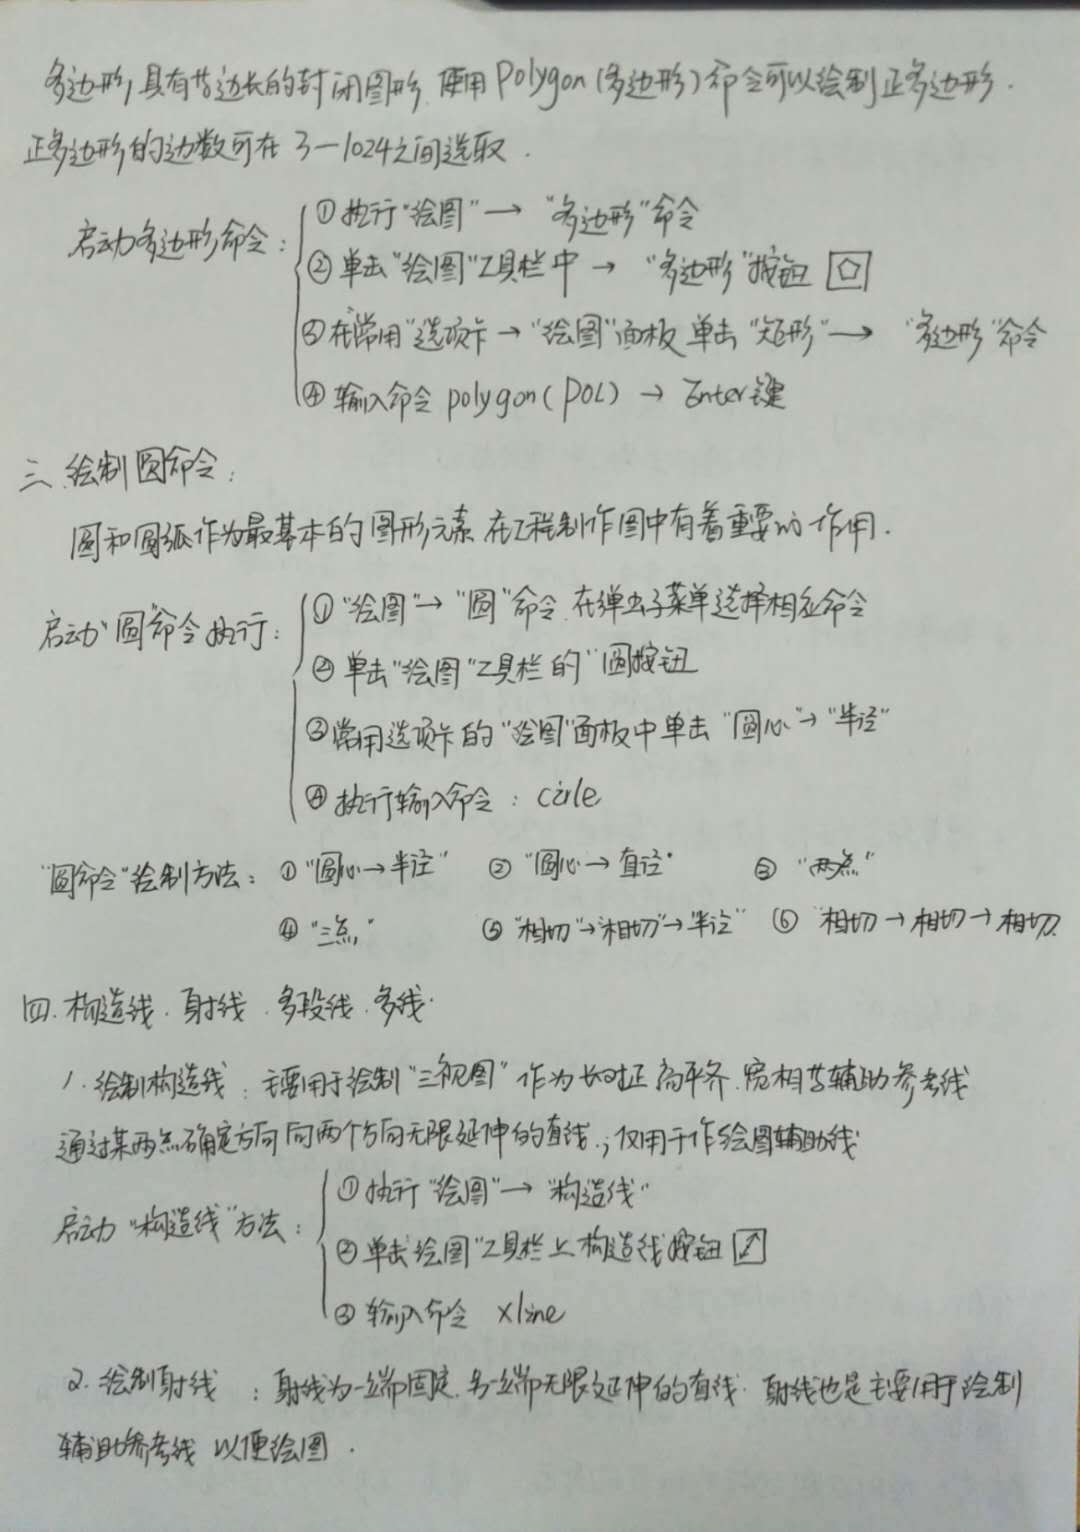 多边形,具有等边长的封闭图形.使用Polygon(多边形)命令可以绘制正多边形.
正多边形的边数可在3—1024之间选取.
启动多边形命令:
①执行"绘图"→"多边形"命令
②单击"绘图"工具栏中→"多边形"按钮
③在常用"选项卡→"绘图"面板单击"矩形"→"多边形"命令
④输入命令polygon(POL)→Enter键
三.绘制圆命令:
圆和圆弧作为最基本的图形元素在工程制作图中有着重要的作用.
启动"圆"命令执行:
①"绘图"→"圆"命令.在弹出子菜单选择相应命令
②单击"绘图"工具栏的"圆按钮
③常用选项卡的"绘图"面板中单击"圆心"→"半径"
④执行输入命令:cirle
"圆命令"绘制方法:①"圆心→半径" ②"圆心→直径" ③"两点"
④"三点" ⑤"相切"→"相切"→"半径" ⑥"相切→相切→相切
四.构造线.射线.多段线.多线.
1.绘制构造线:主要用于绘制"三视图"作为长对正高平齐.宽相等辅助参考线
通过某两点确定方向向两个方向无限延伸的直线.;仅用于作绘图辅助线
启动"构造线"方法:
①执行"绘图"→"构造线"
②单击"绘图"工具栏上构造线按钮
③输入命令 xline
2.绘制射线:射线为一端固定.另一端无限延伸的直线.射线也是主要用于绘制
辅助参考线以便绘图.